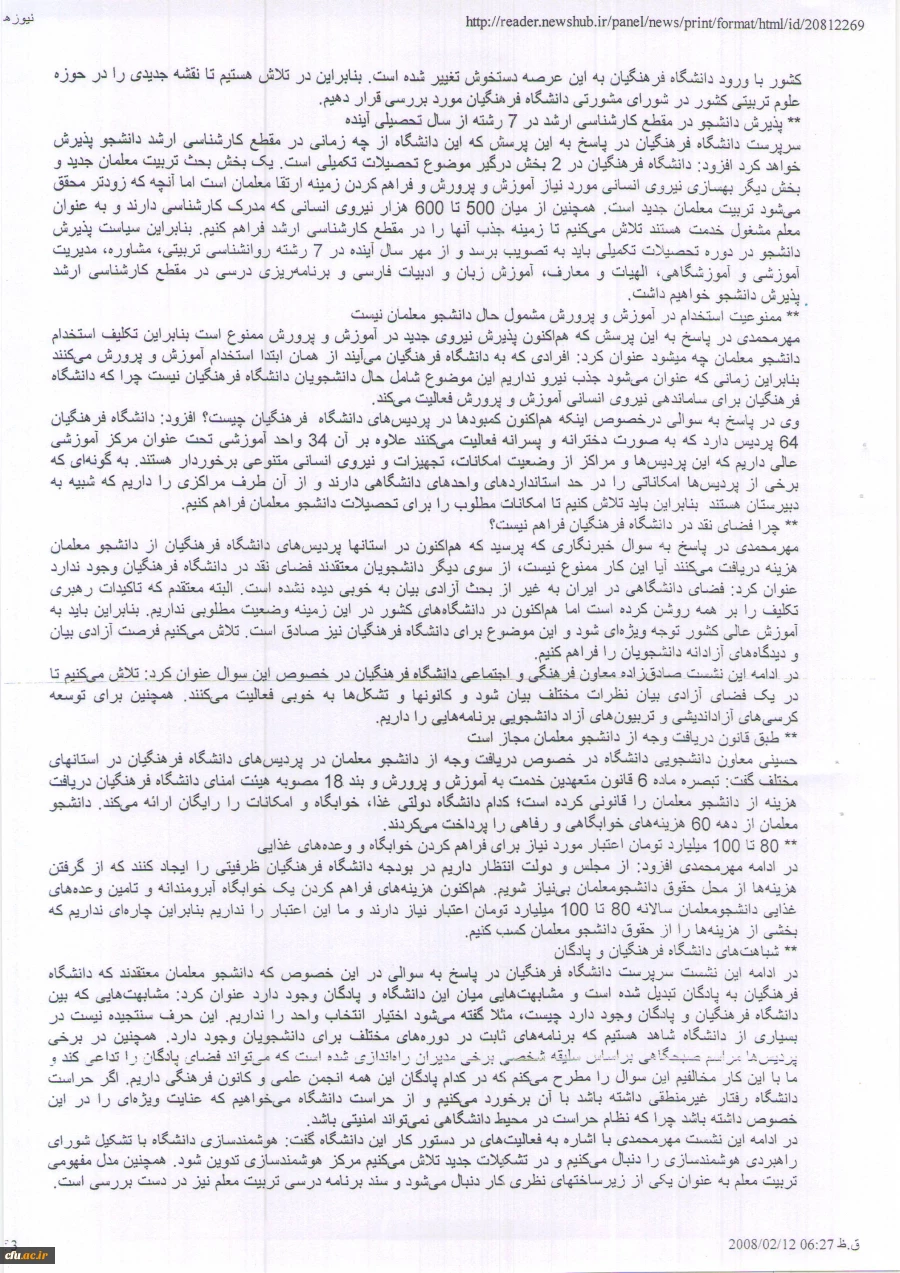 نیوزهـ
http://reader.newshub.ir/panel/news/print/format/html/id/20812269
کشور با ورود دانشگاه فرهنگیان به این عرصه دستخوش تغییر شده است. بنابراین در تلاش هستیم تا نقشه جدیدی را در حوزه
علوم تربیتی کشور در شورای مشورتی دانشگاه فرهنگیان مورد بررسی قرار دهیم.
** پذیرش دانشجو در مقطع کارشناسی ارشد در 7 رشته از سال تحصیلی آینده
سرپرست دانشگاه فرهنگیان در پاسخ به این پرسش که این دانشگاه از چه زمانی در مقطع کارشناسی ارشد دانشجو پذیرش
خواهد کرد افزود: دانشگاه فرهنگیان در 2 بخش درگیر موضوع تحصیلات تکمیلی است. یک بخش بحث تربیت معلمان جدید و
بخش دیگر بهسازی نیروی انسانی مورد نیاز آموزش و پرورش و فراهم کردن زمینه ارتقا معلمان است اما آنچه که زودتر محقق
می‌شود تربیت معلمان جدید است. همچنین از میان 500 تا 600 هزار نیروی انسانی که مدرک کارشناسی دارند و به عنوان
معلم مشغول خدمت هستند تلاش می‌کنیم تا زمینه جذب آنها را در مقطع کارشناسی ارشد فراهم کنیم. بنابراین سیاست پذیرش
دانشجو در دوره تحصیلات تکمیلی باید به تصویب برسد و از مهر سال آینده در 7 رشته روانشناسی تربیتی، مشاوره، مدیریت
آموزشی و آموزشگاهی، الهیات و معارف، آموزش زبان و ادبیات فارسی و برنامه‌ریزی درسی در مقطع کارشناسی ارشد
پذیرش دانشجو خواهیم داشت.
** ممنوعیت استخدام در آموزش و پرورش مشمول حال دانشجو معلمان نیست
مهرمحمدی در پاسخ به این پرسش که هم‌اکنون پذیرش نیروی جدید در آموزش و پرورش ممنوع است بنابراین تکلیف استخدام
دانشجو معلمان چه میشود عنوان کرد: افرادی که به دانشگاه فرهنگیان می‌آیند از همان ابتدا استخدام آموزش و پرورش می‌کنند
بنابراین زمانی که عنوان می‌شود جذب نیرو نداریم این موضوع شامل حال دانشجویان دانشگاه فرهنگیان نیست چرا که دانشگاه
فرهنگیان برای ساماندهی نیروی انسانی آموزش و پرورش فعالیت می‌کند.
وی در پاسخ به سوالی درخصوص اینکه هم‌اکنون کمبودها در پردیس‌های دانشگاه فرهنگیان چیست؟ افزود: دانشگاه فرهنگیان
64 پردیس دارد که به صورت دخترانه و پسرانه فعالیت می‌کنند علاوه بر آن 34 واحد آموزشی تحت عنوان مرکز آموزشی
عالی داریم که این پردیس‌ها و مراکز از وضعیت امکانات، تجهیزات و نیروی انسانی متنوعی برخوردار هستند. به گونه‌ای که
برخی از پردیس‌ها امکاناتی را در حد استانداردهای واحدهای دانشگاهی دارند و از آن طرف مراکزی را داریم که شبیه به
دبیرستان هستند بنابراین باید تلاش کنیم تا امکانات مطلوب را برای تحصیلات دانشجو معلمان فراهم کنیم.
** چرا فضای نقد در دانشگاه فرهنگیان فراهم نیست؟
مهرمحمدی در پاسخ به سوال خبرنگاری که پرسید که هم‌اکنون در استانها پردیس‌های دانشگاه فرهنگیان از دانشجو معلمان
هزینه دریافت می‌کنند آیا این کار ممنوع نیست، از سوی دیگر دانشجویان معتقدند فضای نقد در دانشگاه فرهنگیان وجود ندارد
عنوان کرد: فضای دانشگاهی در ایران به غیر از بحث آزادی بیان به خوبی دیده نشده است. البته معتقدم که تاکیدات رهبری
تکلیف را بر همه روشن کرده است اما هم‌اکنون در دانشگاه‌های کشور در این زمینه وضعیت مطلوبی نداریم. بنابراین باید به
آموزش عالی کشور توجه ویژه‌ای شود و این موضوع برای دانشگاه فرهنگیان نیز صادق است. تلاش می‌کنیم فرصت آزادی بیان
و دیدگاه‌های آزادانه دانشجویان را فراهم کنیم.
در ادامه این نشست صادق‌زاده معاون فرهنگی و اجتماعی دانشگاه فرهنگیان در خصوص این سوال عنوان کرد: تلاش می‌کنیم تا
در یک فضای آزادی بیان نظرات مختلف بیان شود و کانونها و تشکل‌ها به خوبی فعالیت می‌کنند. همچنین برای توسعه
کرسی‌های آزاداندیشی و تریبون‌های آزاد دانشجویی برنامه‌هایی را داریم.
** طبق قانون دریافت وجه از دانشجو معلمان مجاز است
حسینی معاون دانشجویی دانشگاه در خصوص دریافت وجه از دانشجو معلمان در پردیس‌های دانشگاه فرهنگیان در استانهای
مختلف گفت: تبصره ماده 6 قانون متعهدین خدمت به آموزش و پرورش و بند 18 مصوبه هیئت امنای دانشگاه فرهنگیان دریافت
هزینه از دانشجو معلمان را قانونی کرده است؛ کدام دانشگاه دولتی غذا، خوابگاه و امکانات را رایگان ارائه می‌کند. دانشجو
معلمان از دهه 60 هزینه‌های خوابگاهی و رفاهی را پرداخت می‌کردند.
** 80 تا 100 میلیارد تومان اعتبار مورد نیاز برای فراهم کردن خوابگاه و وعده‌های غذایی
در ادامه مهرمحمدی افزود: از مجلس و دولت انتظار داریم در بودجه دانشگاه فرهنگیان ظرفیتی را ایجاد کنند که از گرفتن
هزینه‌ها از محل حقوق دانشجومعلمان بی‌نیاز شویم. هم‌اکنون هزینه‌های فراهم کردن یک خوابگاه آبرومندانه و تامین وعده‌های
غذایی دانشجومعلمان سالانه 80 تا 100 میلیارد تومان اعتبار نیاز دارند و ما این اعتبار را نداریم بنابراین چاره‌ای نداریم که
بخشی از هزینه‌ها را از حقوق دانشجو معلمان کسب کنیم.
** شباهت‌های دانشگاه فرهنگیان و پادگان
در ادامه این نشست سرپرست دانشگاه فرهنگیان در پاسخ به سوالی در این خصوص که دانشجو معلمان معتقدند که دانشگاه
فرهنگیان به پادگان تبدیل شده است و مشابهت‌هایی میان این دانشگاه و پادگان وجود دارد عنوان کرد: مشابهت‌هایی که بین
دانشگاه فرهنگیان و پادگان وجود دارد چیست، مثلا گفته می‌شود اختیار انتخاب واحد را نداریم. این حرف سنتجیده نیست در
بسیاری از دانشگاه شاهد هستیم که برنامه‌های ثابت در دوره‌های مختلف برای دانشجویان وجود دارد. همچنین در برخی
پردیس‌ها مراسم صبحگاهی براساس سلیقه شخصی برخی مدیران راه‌اندازی شده است که می‌تواند فضای پادگان را تداعی کند و
ما با این کار مخالفیم این سوال را مطرح می‌کنم که در کدام پادگان این همه انجمن علمی و کانون فرهنگی داریم. اگر حراست
دانشگاه رفتار غیرمنطقی داشته باشد با آن برخورد می‌کنیم و از حراست دانشگاه می‌خواهیم که عنایت ویژه‌ای را در این
خصوص داشته باشد چرا که نظام حراست در محیط دانشگاهی نمی‌تواند امنیتی باشد.
در ادامه این نشست مهرمحمدی با اشاره به فعالیت‌های در دستور کار این دانشگاه گفت: هوشمندسازی دانشگاه با تشکیل شورای
راهبردی هوشمندسازی را دنبال می‌کنیم و در تشکیلات جدید تلاش می‌کنیم مرکز هوشمندسازی تدوین شود. همچنین مدل مفهومی
تربیت معلم به عنوان یکی از زیرساختهای نظری کار دنبال می‌شود و سند برنامه درسی تربیت معلم نیز در دست بررسی است.
2008/02/12 06:27 ق.ظ
cfu.ac.ir